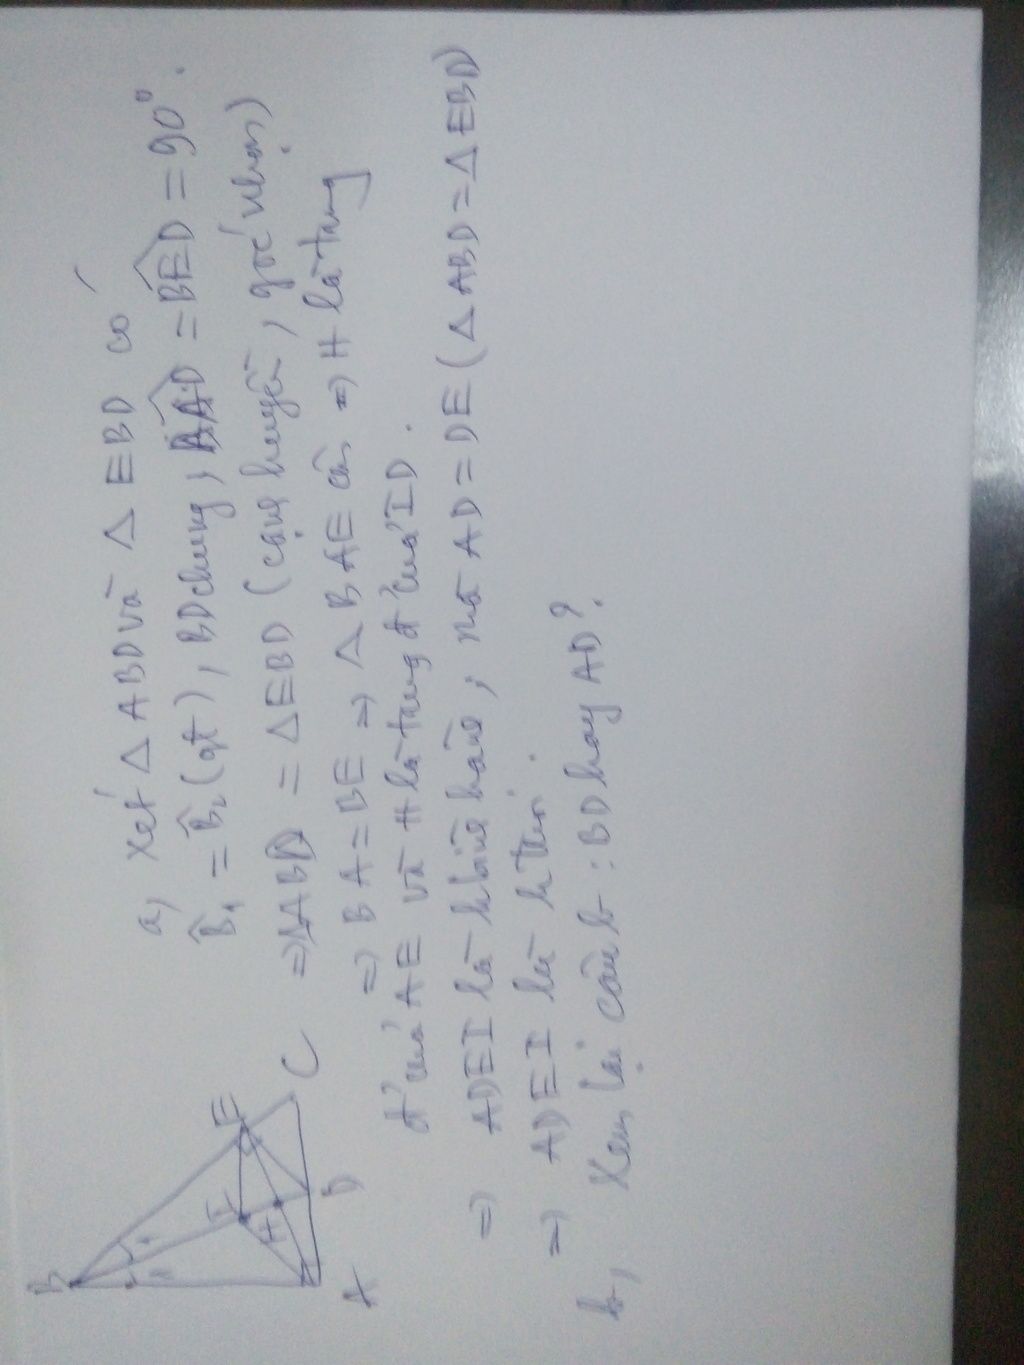 a, Xét Δ ABD và Δ EBD có
B̂₁ = B̂₂ (gt), BD chung, BÂD = BÊD = 90°.
⇒ΔABD = ΔEBD (cạnh huyền, góc nhọn)
⇒ BA = BE ⇒ Δ BAE cân ⇒ H là trung
đ' của AE và H là trung đ' của ID.
⇒ ADEI là h bình hành, mà AD = DE (Δ ABD = Δ EBD)
⇒ ADEI là h thoi.
b, Xem lại câu b: BD hay AD?
B
1
2
I
E
H
A
D
C